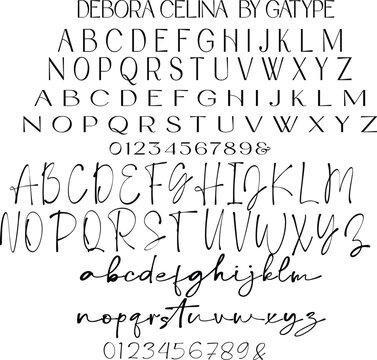 DEBORA CELINA BY GATYPE
ABCDEFGHIJKLM
NOPQRSTUVWXYZ
ABCDEFGHIJKLM
NOPQRSTUVWXYZ
0123456789&
ABCDEFGHIJKLM
NOPQRSTUVWXYZ
abcdefghijklm
nopqrstuvwxyz
0123456789&